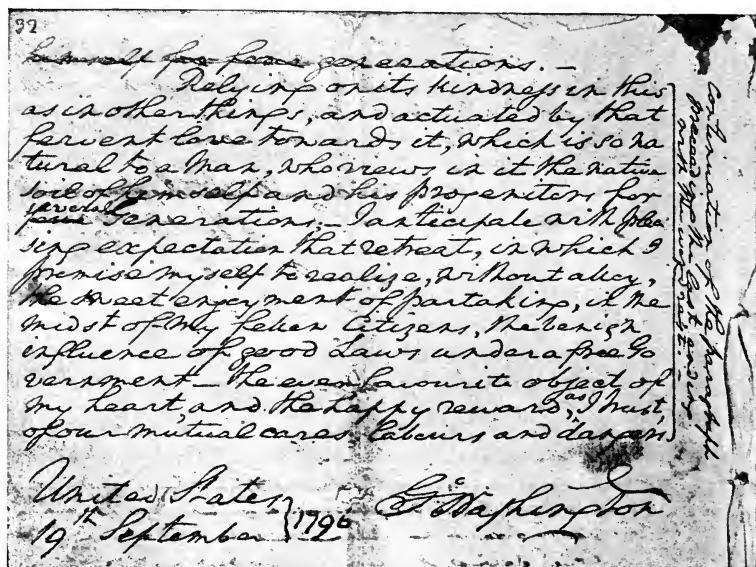 32
himself for four generations. —
Relying on its kindness in this
as in other things, and actuated by that
fervent love towards it, which is so na
tural to a Man, who views in it the native
soil of himself and his progenitors for
several
four Generations, — I anticipate with plea
sing expectation that retreat, in which I
promise myself to realize, without alloy,
the sweet enjoyment of partaking, in the
midst of my fellow Citizens, the benign
influence of good Laws under a free Go
vernment — the ever favourite object of
my heart, and the happy reward, as I trust,
of our mutual cares, labours and dangers.
United States
19th September } 1796
Go Washington
Continuation of the paragraph
preceding the last ending
with the word